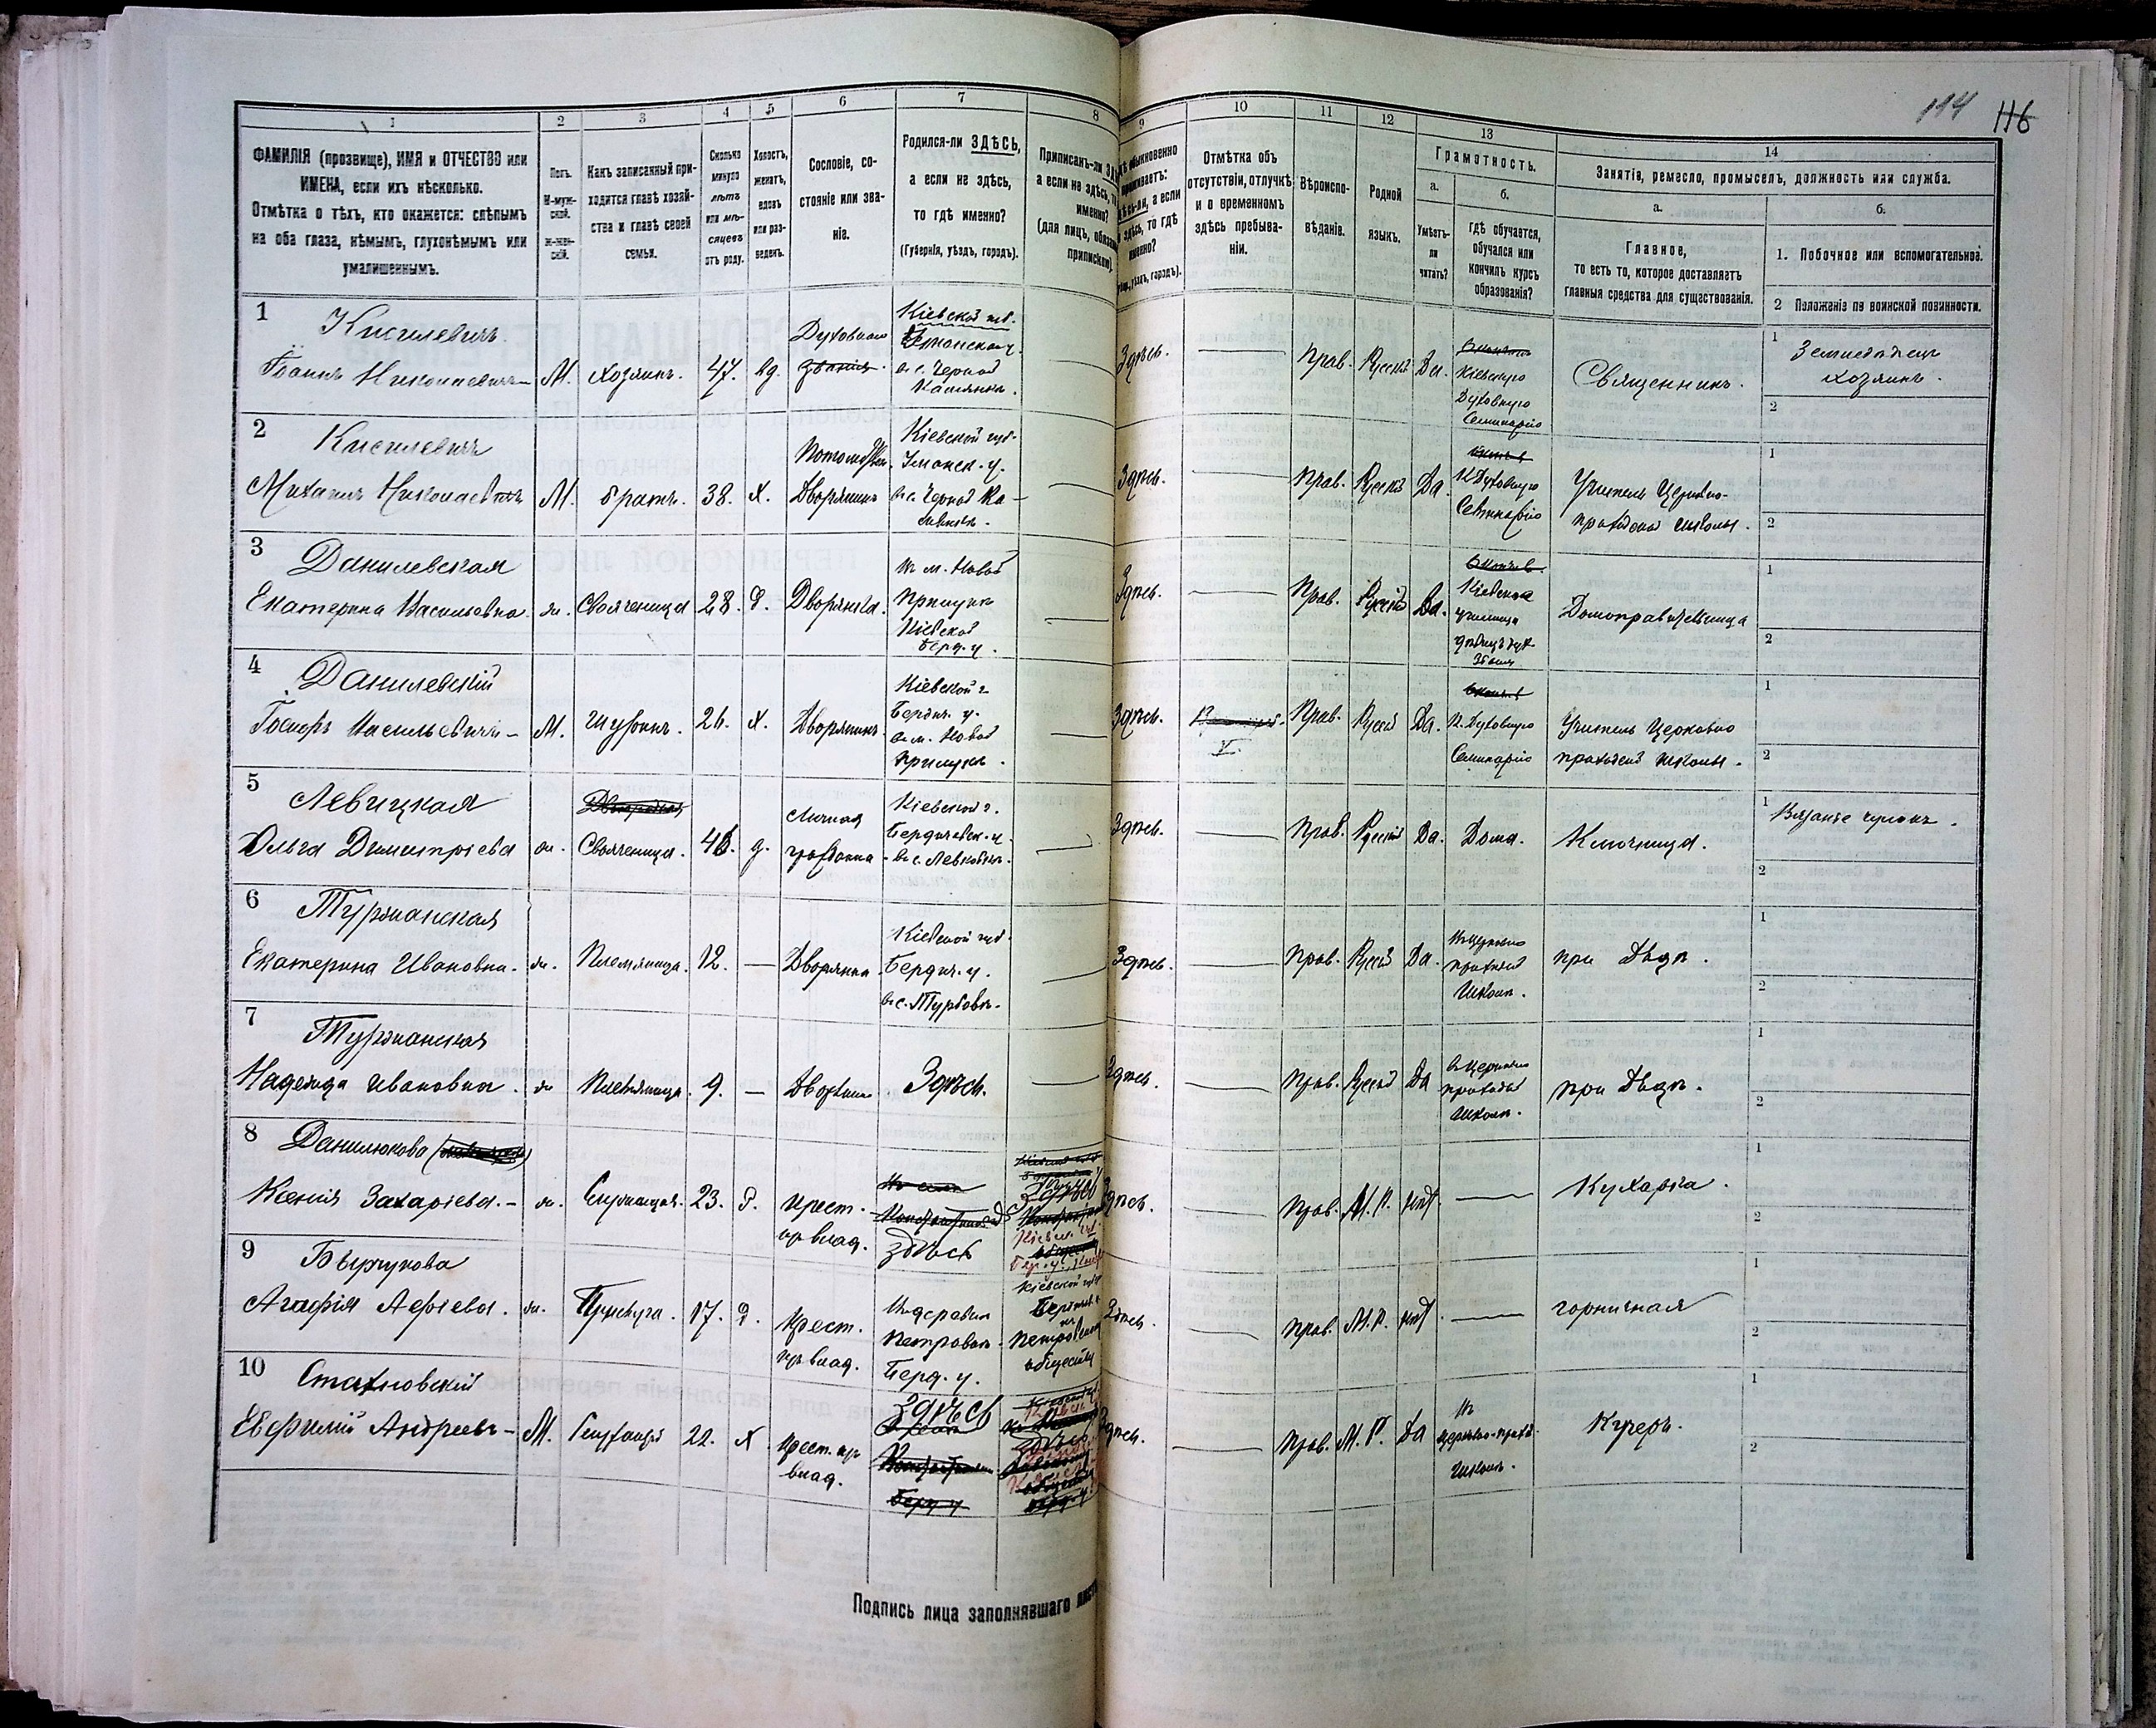 114 116
1 2 3 4 5 6 7 8 9 10 11 12 13 14
ФАМИЛІЯ (прозвище), ИМЯ и ОТЧЕСТВО или
ИМЕНА, если ихъ нѣсколько.
Отмѣтка о тѣхъ, кто окажется: слѣпымъ
на оба глаза, нѣмымъ, глухонѣмымъ или
умалишеннымъ.
Полъ.
М-муж-
ской.
ж-жен-
скій.
Какъ записанный при-
ходится главѣ хозяй-
ства и главѣ своей
семьи.
Сколько
минуло
лѣтъ
или мѣ-
сяцевъ
отъ роду.
Холостъ,
женатъ,
вдовъ
или раз-
веденъ.
Сословіе, со-
стояніе или зва-
ніе.
Родился-ли ЗДѢСЬ,
а если не здѣсь,
то гдѣ именно?
(Губернія, уѣздъ, городъ).
Приписанъ-ли
а если не здѣсь,
именно?
(для лицъ,
припискою)
обыкновенно
проживаетъ:
а если
здѣсь, то гдѣ
именно?
уѣздъ, городъ).
Отмѣтка объ
отсутствіи, отлучкѣ
и о временномъ
здѣсь пребыва-
ніи.
Вѣроиспо-
вѣданіе.
Родной
языкъ.
Грамотность.
а.
Умѣетъ-
ли
читать?
б.
гдѣ обучается,
обучался или
кончилъ курсъ
образованія?
Занятіе, ремесло, промыселъ, должность или служба.
а.
Главное,
то есть то, которое доставляетъ
главныя средства для существованія.
б.
1. Побочное или вспомогательное.
2 Положеніе по воинской повинности.
1
Кисилевичъ
Іоаннъ Николаевичъ
М.
хозяинъ.
47.
вд.
Духовнаго
званія.
Кіевской губ.
Уманскаго у.
въ с. Черной
Каменкѣ.
Здѣсь.
Прав.
Русскій
Да.
Кіевскую
Духовную
Семинарію
Священникъ.
1 Земледѣлецъ
хозяинъ.
2
2
Кисилевичъ
Михаилъ Николаевичъ
М.
братъ.
38.
Х.
Дворянинъ
Кіевской губ.
Уманск. у.
въ с. Черной Ка-
менкѣ.
Здѣсь.
Прав.
Русскій
Да.
К. Духовную
Семинарію
Учитель Церковно-
приходской школы.
1
2
3
Данилевская
Екатерина Васильевна.
ж.
Свояченица
28.
Д.
Дворянка.
въ м. Новой
Прилукѣ
Кіевской
Берд. у.
Здѣсь.
Прав.
Русскій
Да.
Домоправительница
1
2
4
Данилевскій
Іосифъ Васильевичъ
М.
Шуринъ.
26.
Х.
Дворянинъ.
Кіевской г.
Бердич. у.
въ м. Новой
Прилукѣ.
Здѣсь.
Прав.
Русскій
Да.
К. Духовную
Семинарію
Учитель Церковно
приходской школы.
1
2
5
Левицкая
Ольга Димитріева
ж.
Свояченица.
46.
д.
Личная
гражданка
Кіевской г.
Бердичевск. у.
въ с. Левковкѣ.
Здѣсь.
Прав.
Русскій
Да.
Дома.
Ключница.
1 Вязанье чулокъ.
2
6
Туржанская
Екатерина Ивановна.
ж.
Племянница.
12.
—
Дворянка
Кіевской губ.
Бердич. у.
въ с. Турбовѣ.
Здѣсь.
Прав.
Русскій
Да.
въ церковно
приходской
Школѣ.
при дядѣ.
1
2
7
Туржанская
Надежда Ивановна.
ж
Племянница.
9.
—
Дворянка
Здѣсь.
Здѣсь.
Прав.
Русскій
Да
въ церковно
приходской
Школѣ.
при дядѣ.
1
2
8
Данилюкова
Ксенія Захаріева.
ж.
Служащая.
23.
Д.
крест.
здѣсь
Здѣсь.
Прав.
М. Р.
нѣт
Кухарка.
1
2
9
Агафія
ж.
17.
Д.
Крест.
въ деревнѣ
Петровкѣ
Берд. у.
Кіевской губ
обществу
Здѣсь.
Прав.
М. Р.
нѣт.
горничная
1
2
10
Стахновскій
Евфимій Андреевъ
М.
Служащій
22.
Х
крест.
Здѣсь
Здѣсь.
Прав.
М. Р.
Да
въ
церковно-прих.
Школѣ.
Кучеръ.
1
2
Подпись лица заполнявшаго